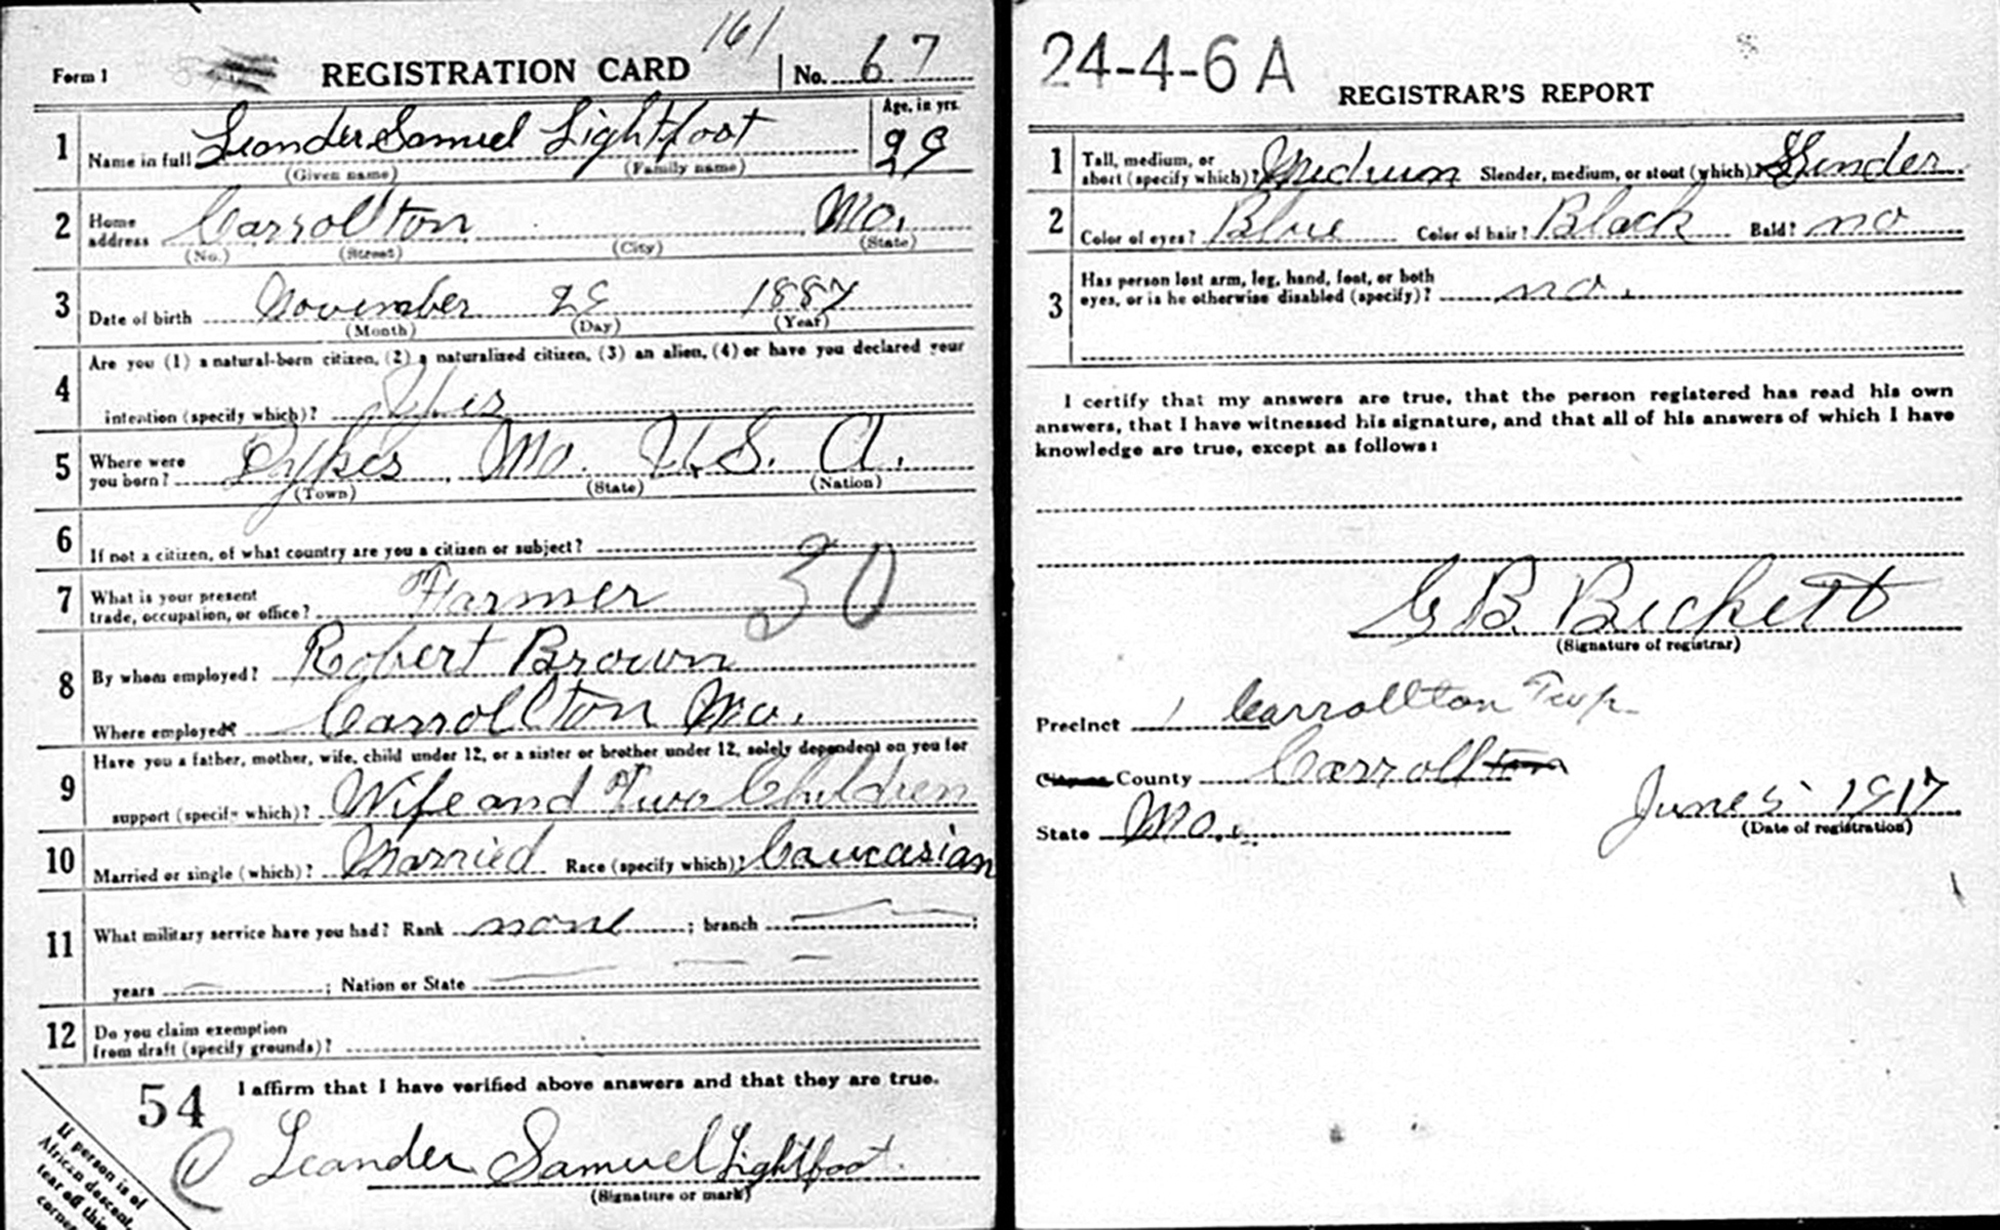 161
Form 1 REGISTRATION CARD No. 67
1 Name in full Leander Samuel Lightfoot Age, in yrs. 29
(Given name) (Family name)
2 Home address Carrollton Mo.
(No.) (Street) (City) (State)
3 Date of birth November 29 1887
(Month) (Day) (Year)
4 Are you (1) a natural-born citizen, (2) a naturalized citizen, (3) an alien, (4) or have you declared your
intention (specify which)? Yes
5 Where were you born? Mo. U.S. A.
(Town) (State) (Nation)
6 If not a citizen, of what country are you a citizen or subject?
30
7 What is your present trade, occupation, or office? Farmer
8 By whom employed? Robert Brown
Where employed? Carrollton Mo.
9 Have you a father, mother, wife, child under 12, or a sister or brother under 12, solely dependent on you for
support (specify which)? Wife and Two Children
10 Married or single (which)? Married Race (specify which)? Caucasian
11 What military service have you had? Rank none ; branch ;
years ; Nation or State
12 Do you claim exemption
from draft (specify grounds)?
54 I affirm that I have verified above answers and that they are true.
Leander Samuel Lightfoot
(Signature or mark)
If person is of
African descent,
tear off this
corner
24-4-6 A
REGISTRAR'S REPORT
1 Tall, medium, or short (specify which)? Medium Slender, medium, or stout (which)? Slender
2 Color of eyes? Blue Color of hair? Black Bald? no
3 Has person lost arm, leg, hand, foot, or both
eyes, or is he otherwise disabled (specify)? no.
I certify that my answers are true, that the person registered has read his own
answers, that I have witnessed his signature, and that all of his answers of which I have
knowledge are true, except as follows:
G B. Beckett
(Signature of registrar)
Precinct 1 Carrollton Twp
County Carroll
State Mo. June 5 1917
(Date of registration)